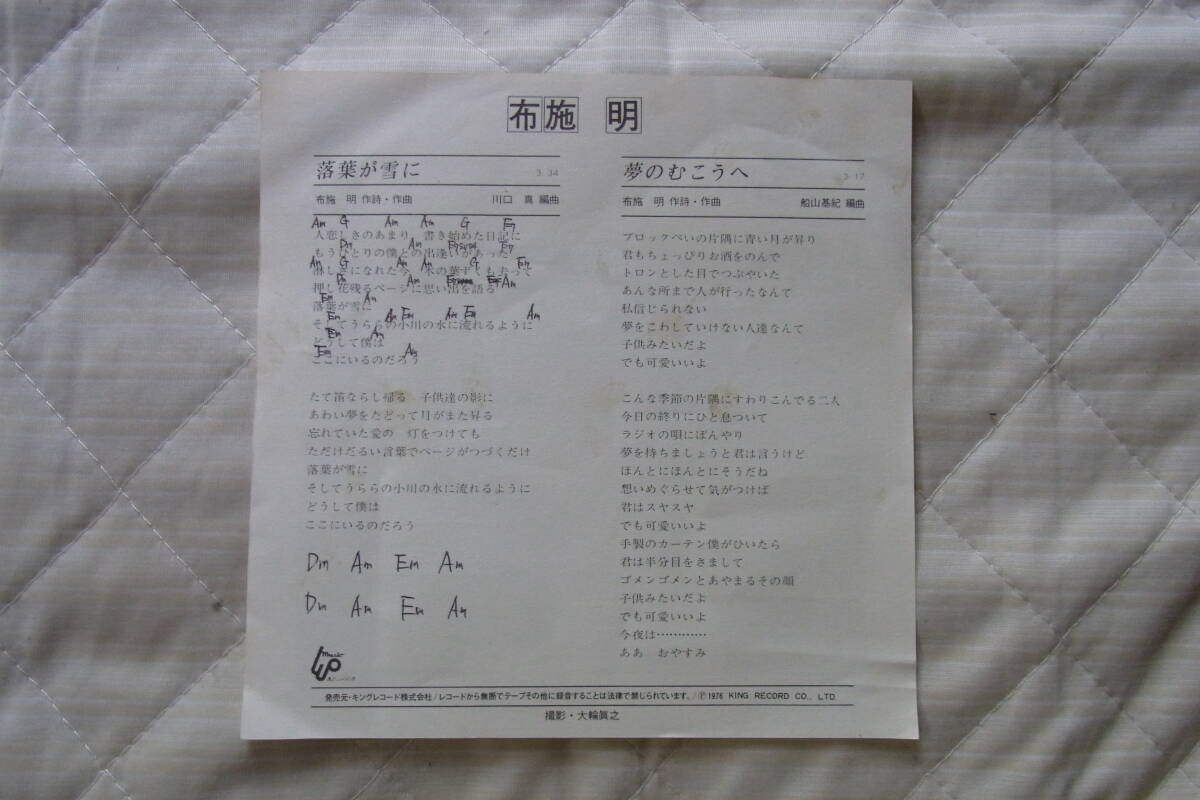 布施 明
落葉が雪に 3.34
布施 明 作詩・作曲 川口 真 編曲
Am G Am Am G Em
人恋しさのあまり 書き始めた日記に
Dm Am Em
もうひとりの僕との出逢いがあった
Am G Am Am G Em
淋しさになれた今 木の葉すくも去って
Dm Am Am
押し花残るページに思い出を語る
Em Am
落葉が雪に
Em Am Em Am Em Am
そしてうららの小川の水に流れるように
Em Am
どうして僕は
Em Am
ここにいるのだろう
たて笛ならし帰る 子供達の影に
あわい夢をたどって月がまた昇る
忘れていた愛の 灯をつけても
ただけだるい言葉でページがつづくだけ
落葉が雪に
そしてうららの小川の水に流れるように
どうして僕は
ここにいるのだろう
Dm Am Em Am
Dm Am Em Am
music
夢のむこうへ 3.17
布施 明 作詩・作曲 船山基紀 編曲
ブロックべいの片隅に青い月が昇り
君もちょっぴりお酒をのんで
トロンとした目でつぶやいた
あんな所まで人が行ったなんて
私信じられない
夢をこわしていけない人達なんて
子供みたいだよ
でも可愛いいよ
こんな季節の片隅にすわりこんでる二人
今日の終りにひと息ついて
ラジオの唄にぼんやり
夢を持ちましょうと君は言うけど
ほんとにほんとにそうだね
想いめぐらせて気がつけば
君はスヤスヤ
でも可愛いいよ
手製のカーテン僕がひいたら
君は半分目をさまして
ゴメンゴメンとあやまるその顔
子供みたいだよ
でも可愛いいよ
今夜は…………
ああ おやすみ
発売元・キングレコード株式会社/レコードから無断でテープその他に録音することは法律で禁じられています。/Ⓟ1976 KING RECORD CO., LTD.
撮影・大輪眞之